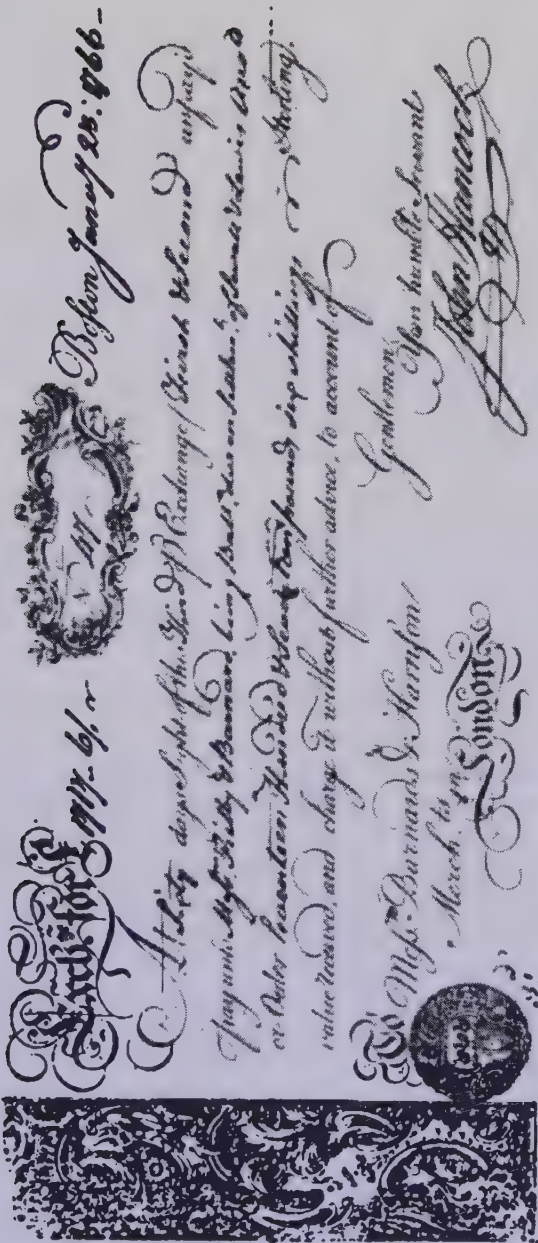 Exch.ª for £1717.. 6/. 47 Boston Janu.y 25: 1766
At Sixty days sight of this Third of Exchange (First & Second unpaid
pay unto Mess.rs & Barnard, being
or Order Seventeen Hundred & Seventeen pounds six shillings Sterling
value received, and charge it without further advice, to account of
Gentlemen,
Your humble Servant
To Mess.rs Barnards & Harrison John Hancock
Merch.ts in
London